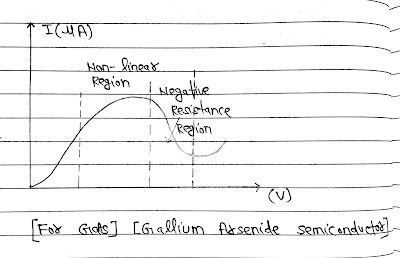 I(μA)
Non-linear
Region
Negative
Resistance
Region
(V)
[For GaAs] [Gallium Arsenide semiconductor]